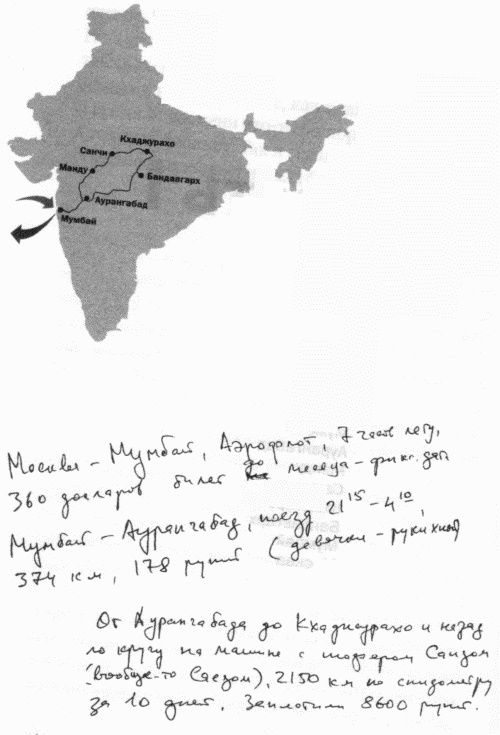 Кхаджурахо
Санчи
Манду
Бандаагарх
Аурангабад
Мумбай
Москва – Мумбай, Аэрофлот, 7 часов лету,
360 долларов билет до месяца – фикс. дата
Мумбай – Аурангабад, поезд 21 15 – 4 10,
374 км, 178 рупий (девочки – руки хной)
От Аурангабада до Кхаджурахо и назад
по кругу на машине с шофером Саидом
(вообще-то Саедом), 2150 км по спидометру
за 10 дней. Заплатили 8600 рупий.